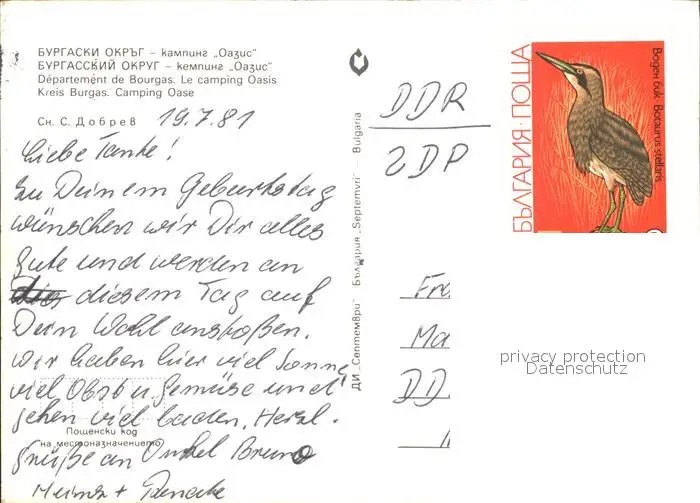 БУРГАСКИ ОКРЪГ – кампинг „Оазис"
БУРГАССКИЙ ОКРУГ – кемпинг „Оазис"
Département de Bourgas. Le camping Oasis
Kreis Burgas. Camping Oase
Сн. С. Добрев 19.7.81
Liebe Tante!
Zu Deinem Geburtstag
wünschen wir Dir alles
Gute und werden an
diesem Tag auf
Dein Wohl anstoßen.
Wir haben hier viel Sonne,
viel Obst u. Gemüse und
gehen viel baden. Herzl.
Пощенски код
на местоназначението
Grüße an Onkel Bruno
+ Renate
ДИ „Септември" България „Septemvri" Bulgaria
DDR
ZDP
Fr
Ma
DD
БЪЛГАРИЯ · ПОЩА
Воден бик Botaurus stellaris
privacy protection
Datenschutz